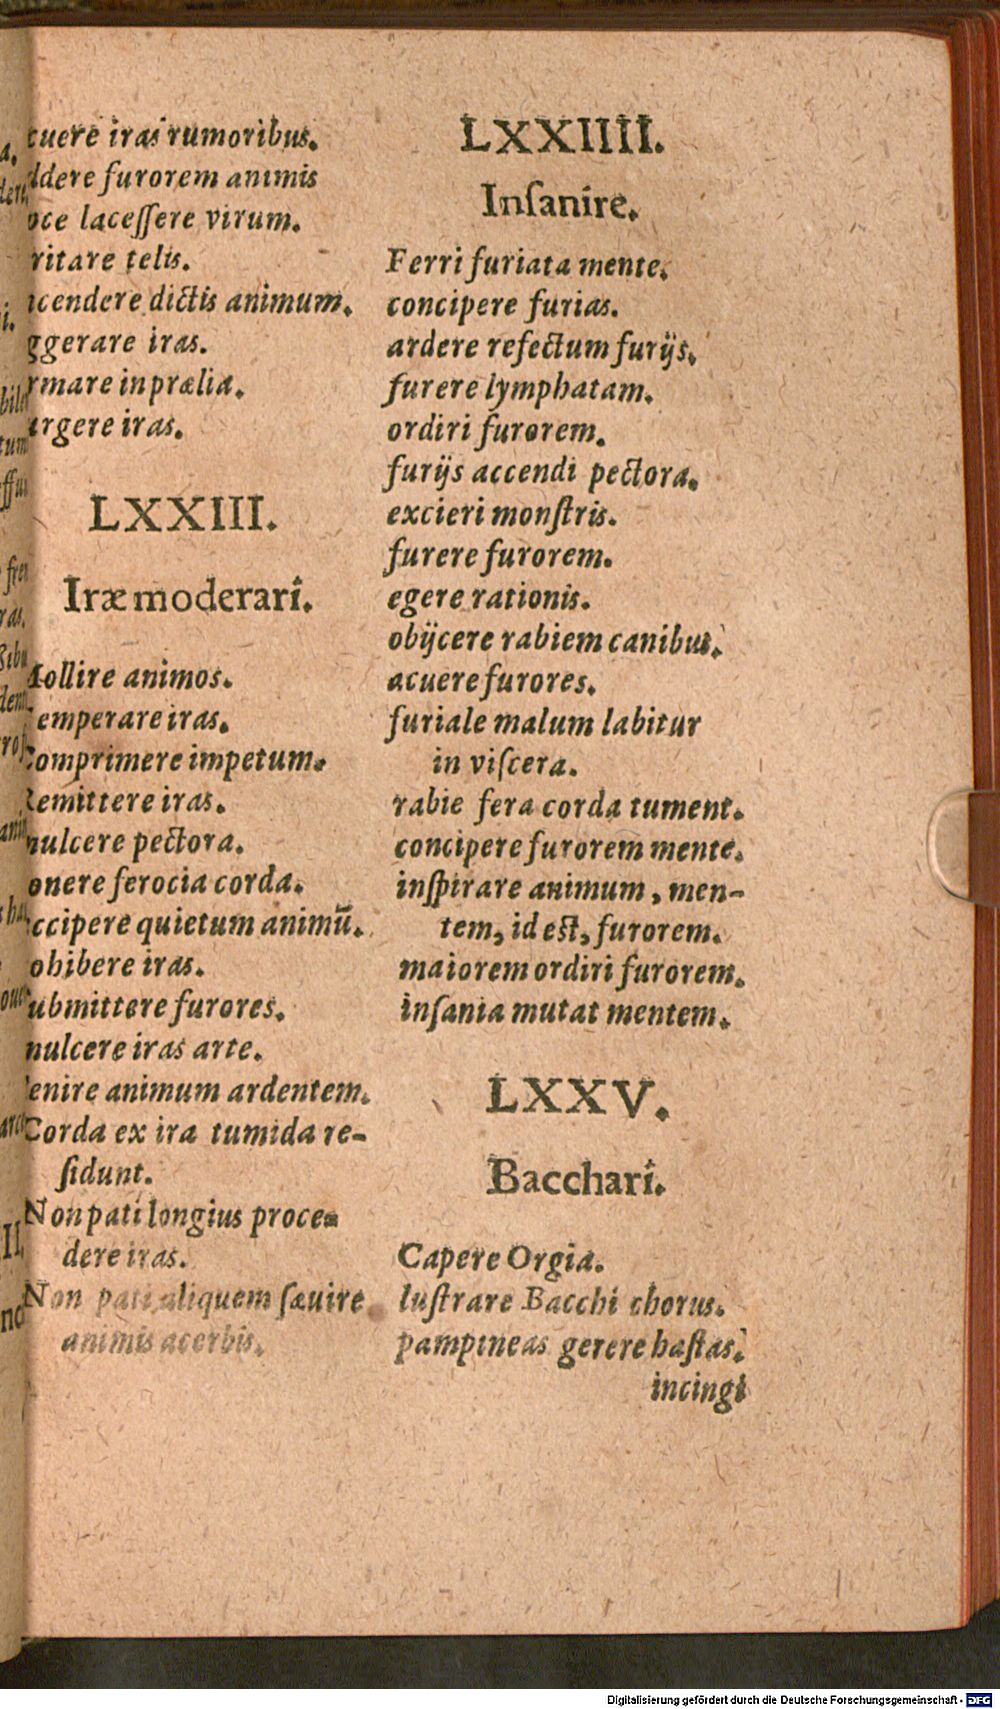 iras rumoribus.
furorem animis
lacessere virum.
telis.
dictis animum.
iras.
in prælia.
iras.
LXXIII.
Iræ moderari.
animos.
iras.
impetum.
iras.
pectora.
ferocia corda.
quietum animū.
iras.
furores.
iras arte.
animum ardentem.
Corda ex ira tumida re-
ſidunt.
Non pati longius proce-
dere iras.
Non pati aliquem ſæuire
animis acerbis.
LXXIIII.
Inſanire.
Ferri furiata mente.
concipere furias.
ardere refectum furijs.
furere lymphatam.
ordiri furorem.
furijs accendi pectora.
excieri monſtris.
furere furorem.
egere rationis.
obijcere rabiem canibus.
acuere furores.
furiale malum labitur
in viſcera.
rabie fera corda tument.
concipere furorem mente.
inſpirare animum, men-
tem, id eſt, furorem.
maiorem ordiri furorem.
inſania mutat mentem.
LXXV.
Bacchari.
Capere Orgia.
luſtrare Bacchi chorus.
pampineas gerere haſtas.
incingi
Digitalisierung gefördert durch die Deutsche Forschungsgemeinschaft - DFG